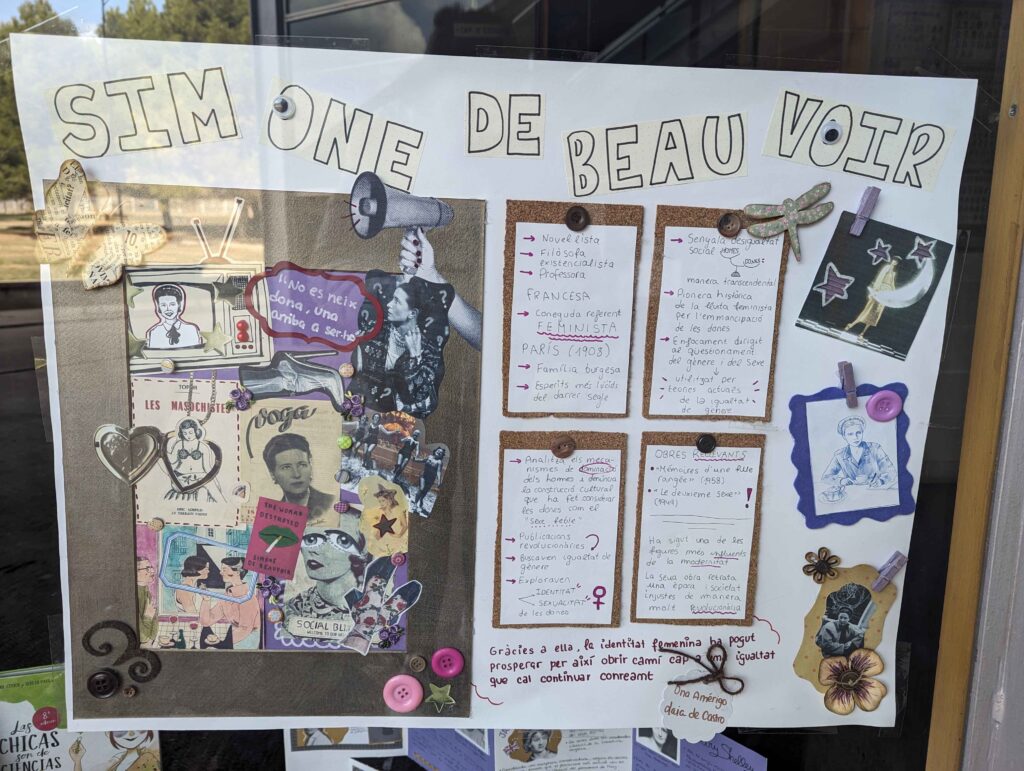 SIMONE DE BEAUVOIR
"No es neix
dona, una
arriba a ser-ho"
TOPOR
LES MASOCHISTES
Voga
THE WOMAN
DESTROYED
SIMONE
DE BEAUVOIR
SOCIAL
→ Novel·lista
→ Filòsofa
existencialista
→ Professora
FRANCESA
→ Coneguda referent
FEMINISTA
PARÍS (1908)
→ Família burgesa
→ Esperits més lúcids
del darrer segle
→ Senyala desigualtat
social HOMES
DONES
manera transcendental
→ Pionera històrica
de la lluita feminista
per l'emmancipació
de les dones
→ Enfocament dirigit
al qüestionament
del gènere i del Sexe
↓
utilitzat per
teories actuals
de la igualtat
de gènere
→ Analitzà els meca-
nismes de dominació
dels homes i denúncia
la construcció cultural
que ha fet considerar
les dones com el
"sexe feble"
→ Publicacions
revolucionàries
→ Buscaven igualtat de
gènere
→ Exploraven
IDENTITAT
SEXUALITAT
de les dones
OBRES RELLEVANTS
• "Mémoires d'une fille
rangée" (1958)
• "Le deuxième sexe"
(1949) !
Ha sigut una de les
figures més influents
de la modernitat
La seua obra retrata
una època i societat
injustes de manera
molt revolucionària
Gràcies a ella, la identitat femenina ha pogut
prosperar per així obrir camí cap a una igualtat
que cal continuar conreant
Ona Amérigo
de Castro
8ª
Las
CHICAS
son de
CIENCIAS
Mary Shelley